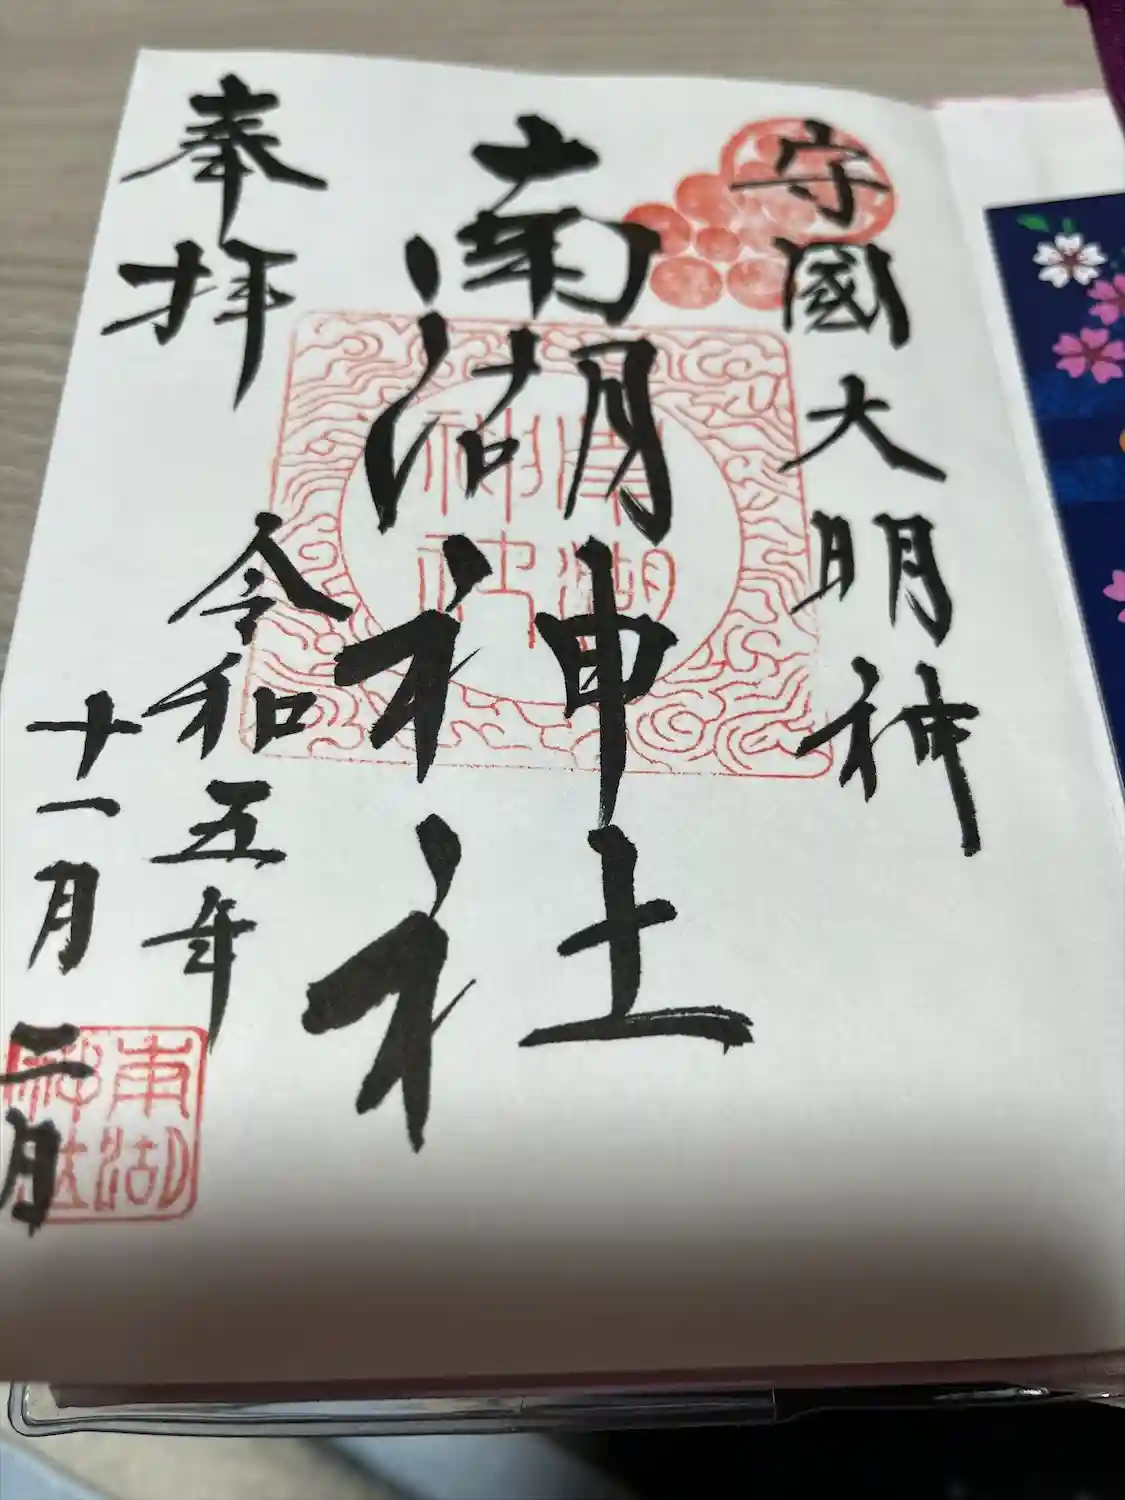 守國大明神
南湖神社
奉拝
令和五年
十一月二日
南湖神社
南湖神社